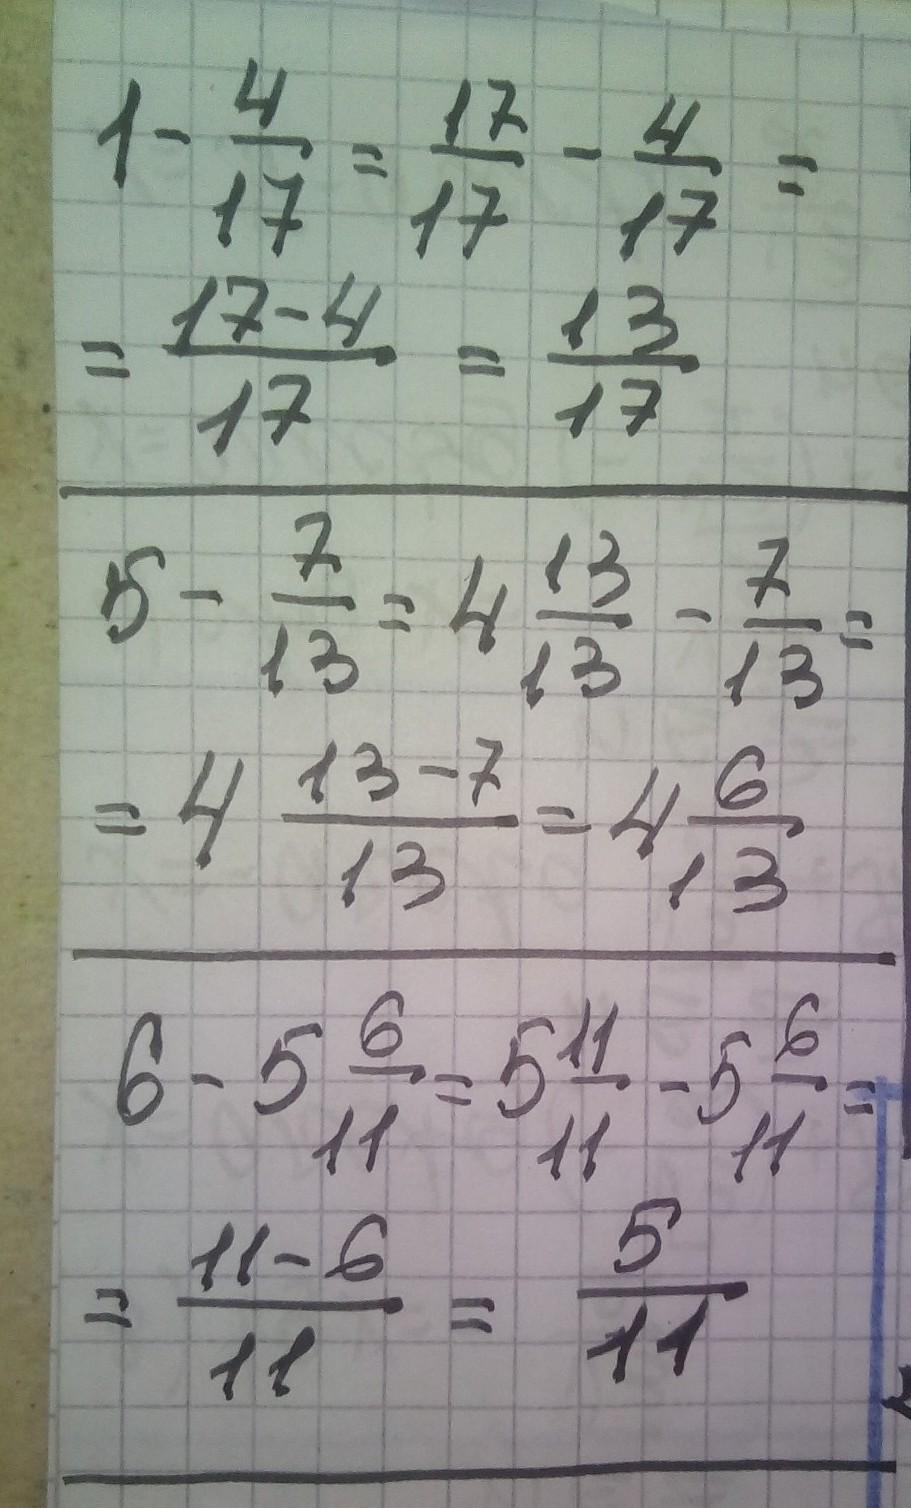 1 - 4/17 = 17/17 - 4/17 =
= 17-4/17 = 13/17
5 - 7/13 = 4 13/13 - 7/13 =
= 4 13-7/13 = 4 6/13
6 - 5 6/11 = 5 11/11 - 5 6/11 =
= 11-6/11 = 5/11